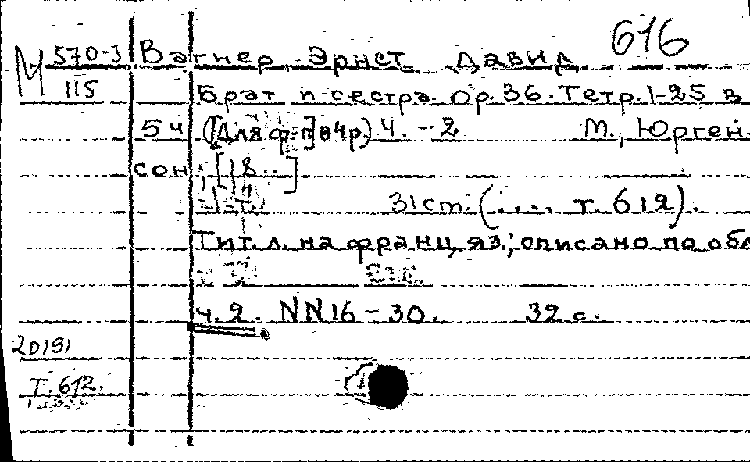 616
М 570-3 Вагнер, Эрнст Давид
115 Брат и сестра. Ор. 36. Тетр. 1-25 в
5 ч. ([Для ф-п] в 4 р.) Ч. - 2 М., Юрген-
сон, [18..]
31 ст. (.... т. 612).
Тит. л. на франц. яз.; описано по обл
ч. 2. NN 16-30. 32 с.
20191
Т. 612.